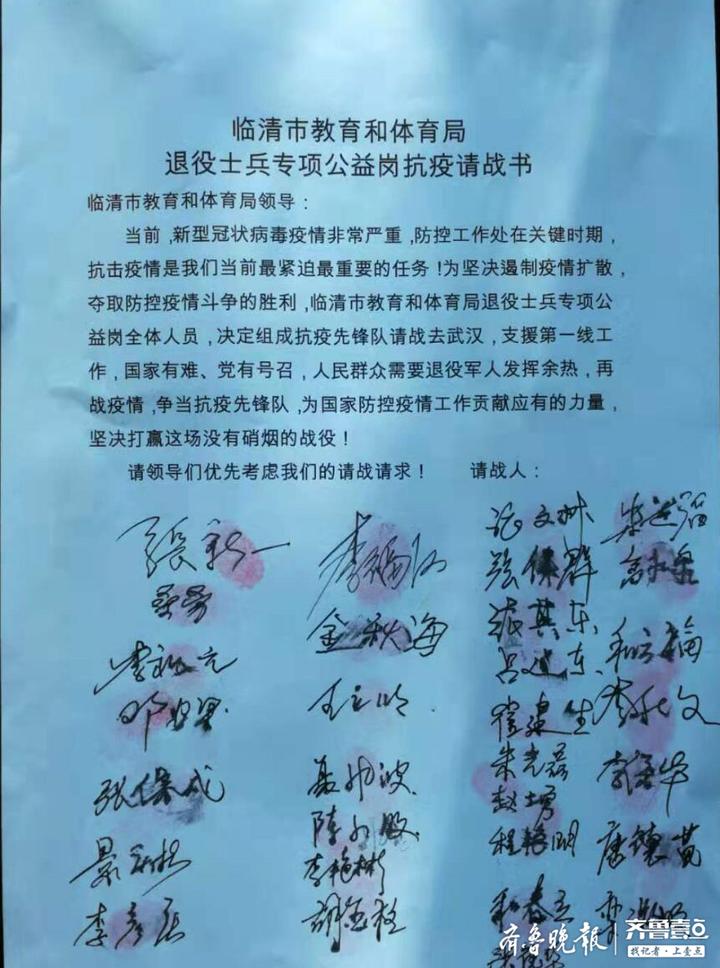 临清市教育和体育局
退役士兵专项公益岗抗疫请战书
临清市教育和体育局领导：
当前，新型冠状病毒疫情非常严重，防控工作处在关键时期，
抗击疫情是我们当前最紧迫最重要的任务！为坚决遏制疫情扩散，
夺取防控疫情斗争的胜利，临清市教育和体育局退役士兵专项公
益岗全体人员，决定组成抗疫先锋队请战去武汉，支援第一线工
作，国家有难、党有号召，人民群众需要退役军人发挥余热，再
战疫情，争当抗疫先锋队，为国家防控疫情工作贡献应有的力量，
坚决打赢这场没有硝烟的战役！
请领导们优先考虑我们的请战请求！ 请战人：
张保成
金秋海
李艳彬
张保群
张其东
吕建东
崔建生
朱光磊
赵士勇
程艳明
和春立
齐鲁晚报
齐鲁壹点
找记者·上壹点